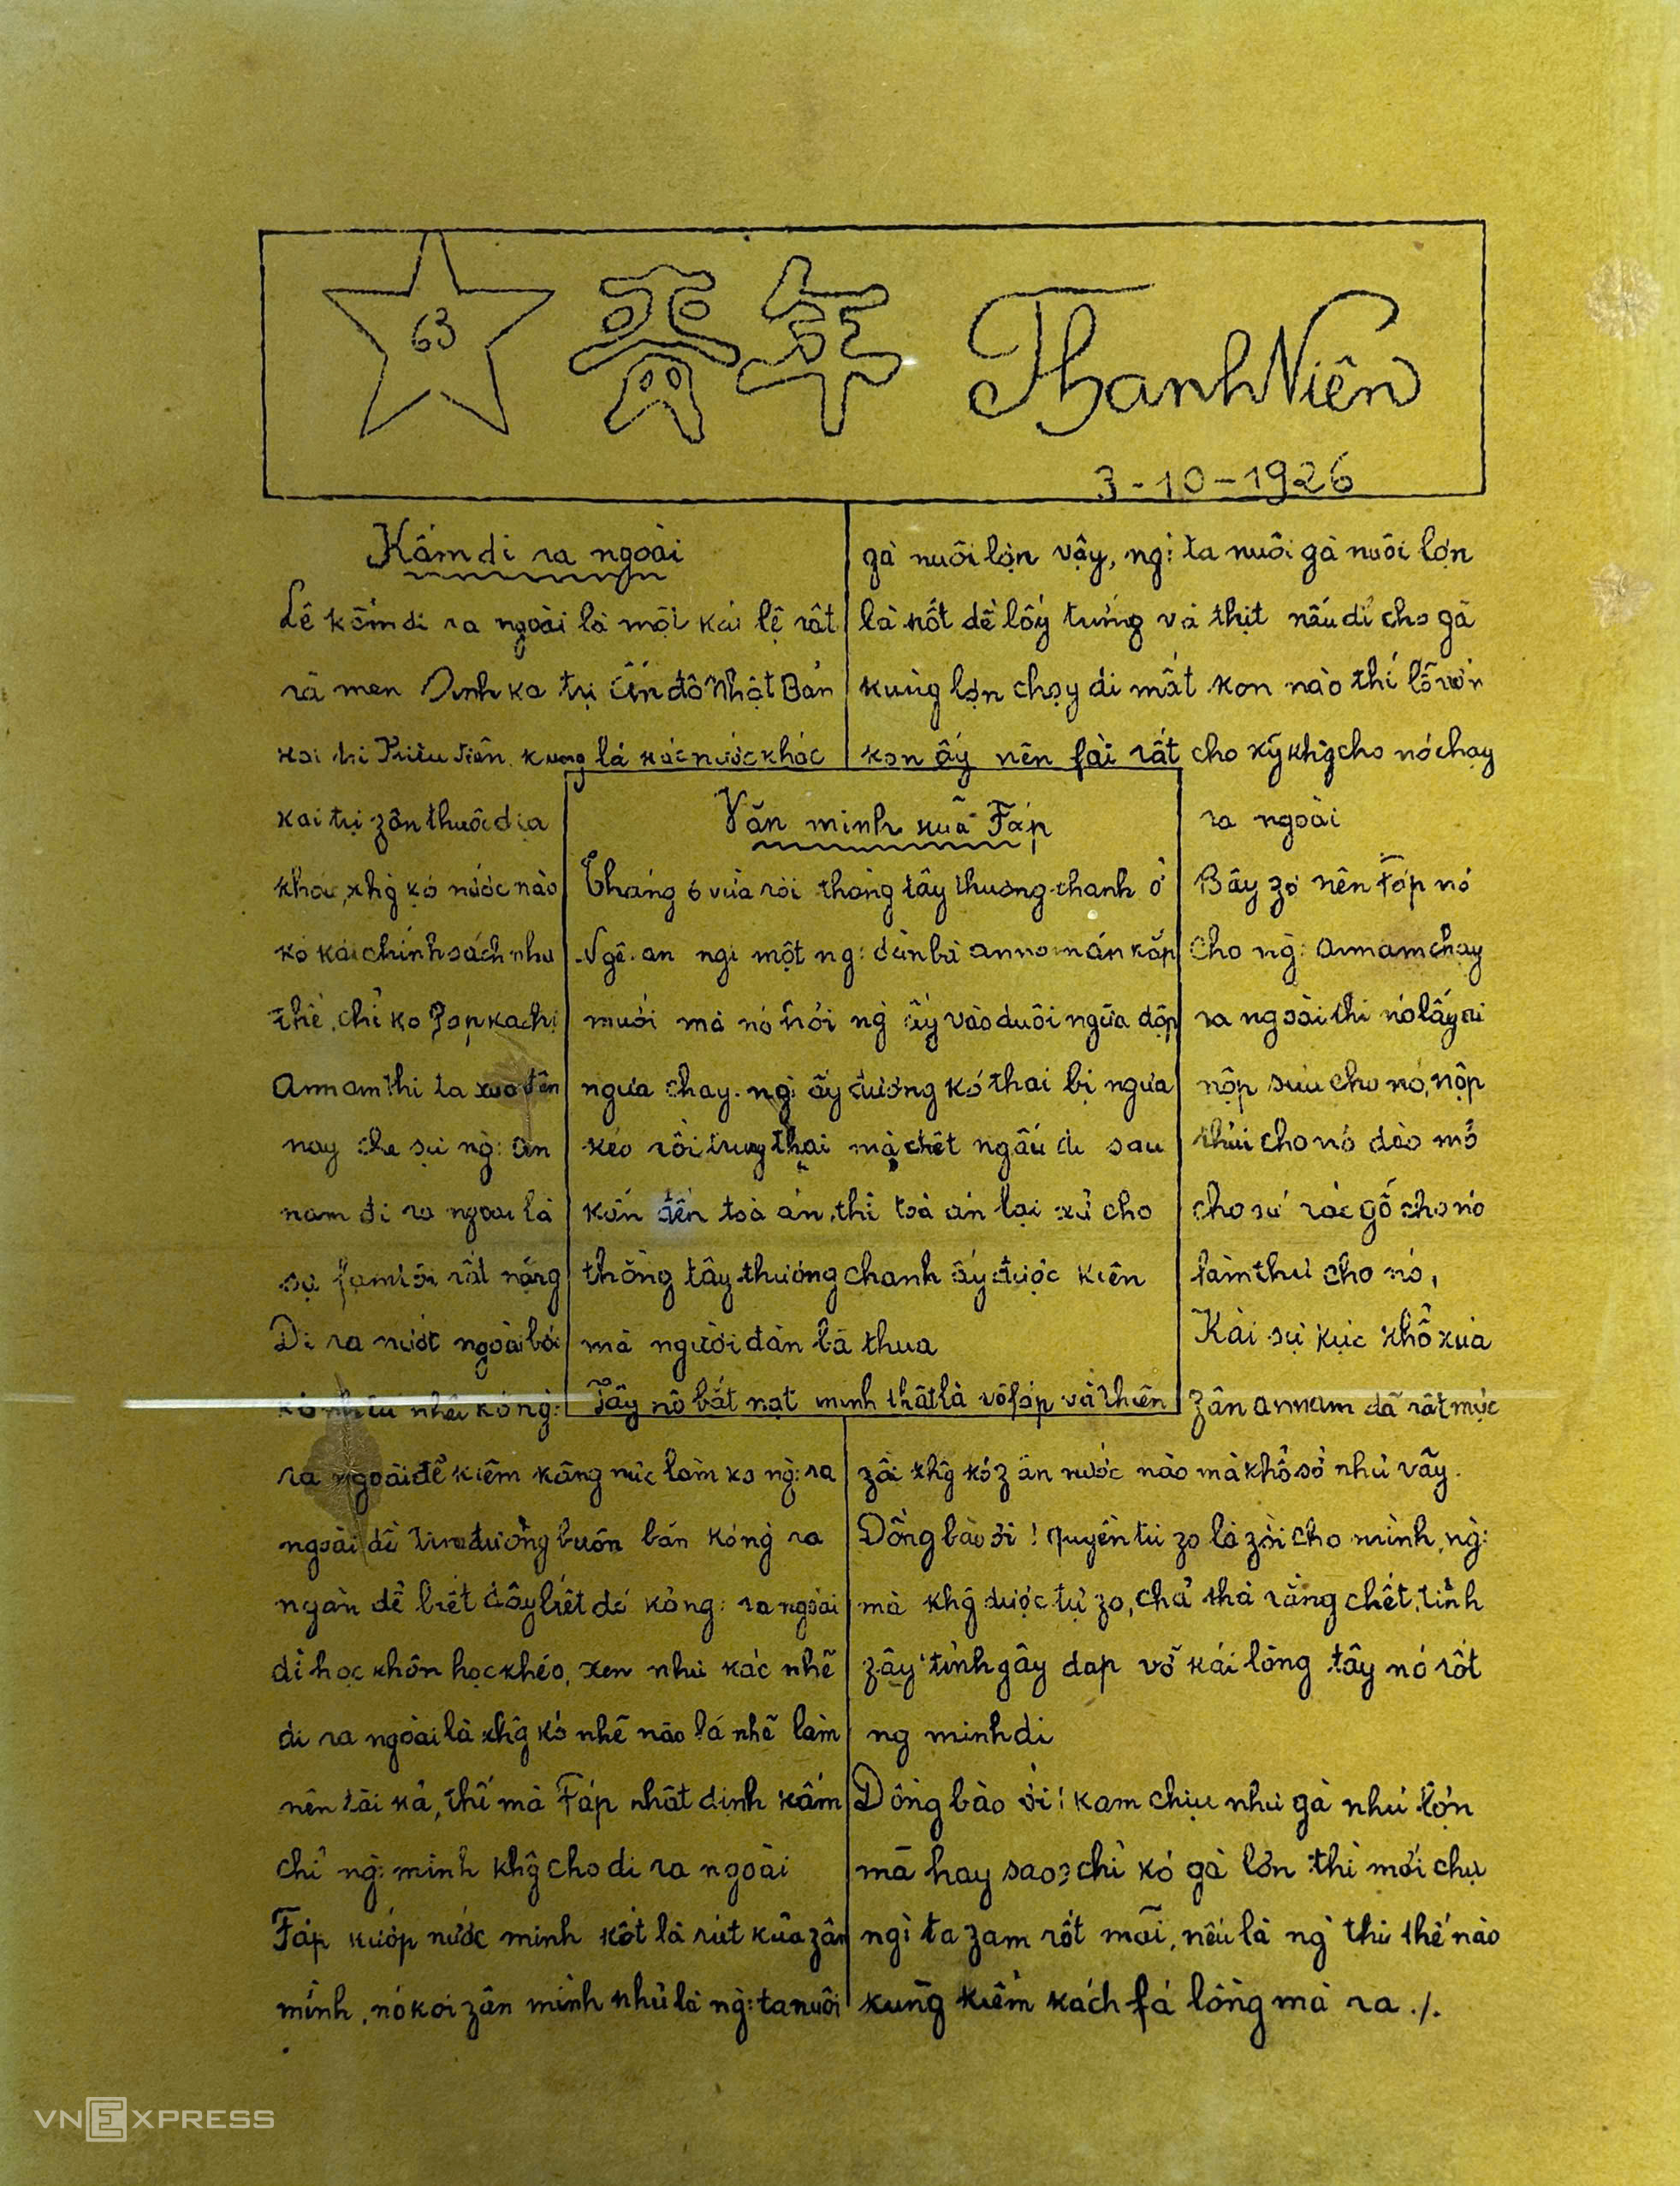 63
青年
Thanh Niên
3-10-1926
Kấm di ra ngoài
Lệ kấm di ra ngoài là một kái lệ rất
rã men Anh ka trị Ấn độ Nhật Bản
kai trị Triều tiên kung là kác nước khác
kai trị zân thuộc dịa
khác, khg kó nước nào
kó kái chính sách như
thế, chỉ ko Fáp kachị
Annam thì ta xưa đến
nay che sự ng: an
nam đi ra ngoài là
sự rất nặng
Di ra nước ngoài bởi
kó ng:
ra ngoài để kiếm kông nức làm ko ng: ra
ngoài dể tìm đường buôn bán kó ng ra
ngoài dể biết đây biết dó kó ng: ra ngoài
dể học khôn học khéo, xem như kác nhẽ
di ra ngoài là khg kó nhẽ nào là nhẽ làm
nên tài kả, thế mà Fáp nhất dịnh kấm
chỉ ng: mình khg cho di ra ngoài
Fáp kướp nước mình kốt là rút kủa zân
mình, nó koi zân mình như là ng: ta nuôi
gà nuôi lợn vậy, ng: ta nuôi gà nuôi lợn
là kốt dể lấy trứng và thịt nếu dể cho gà
kung lợn chạy di mất kon nào thì lỗ vốn
kon ấy nên fải rất cho kỹ khg cho nó chạy
ra ngoài
Bây zờ nên Fáp nó
cho ng: annam chạy
ra ngoài thì nó lấy ai
nộp sưu cho nó, nộp
thuế cho nó dào mỏ
cho nó vác gỗ cho nó
làm thuê cho nó,
Kái sự kực khổ kủa
zân annam dã rất mực
zồi khg kó zân nước nào mà khổ sở như vậy.
Dồng bào ôi! quyền tự zo là zời cho mình, ng:
mà khg dược tự zo, chả thà rằng chết, tỉnh
zậy tỉnh zậy dạp vỡ kái lồng tây nó rốt
ng mình di
Dồng bào ôi! kam chịu như gà như lợn
mã hay sao? chỉ kó gà lợn thì mới chịu
ng: ta zam rốt mãi, nếu là ng thì thế nào
kung kiếm kách fá lồng mà ra ./.
Văn minh kủa Fáp
Tháng 6 vừa rồi thằng tây thương chanh ở
Nghệ an nghi một ng: đàn bà annam ăn kắp
muối mà nó trói ng ấy vào đuôi ngựa dập
ngựa chạy. ng: ấy đương kó thai bị ngựa
kéo rồi trụy thai mà chết ngấu di sau
kiện đến toà án, thì toà án lại xử cho
thằng tây thương chanh ấy được kiện
mà người đàn bà thua
Tây nó bắt nạt mình thật là vô fáp vô thiên
VNEXPRESS